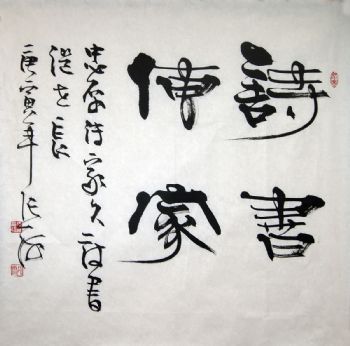 詩書
傳家
忠厚傳家久詩書
繼世長
庚寅年